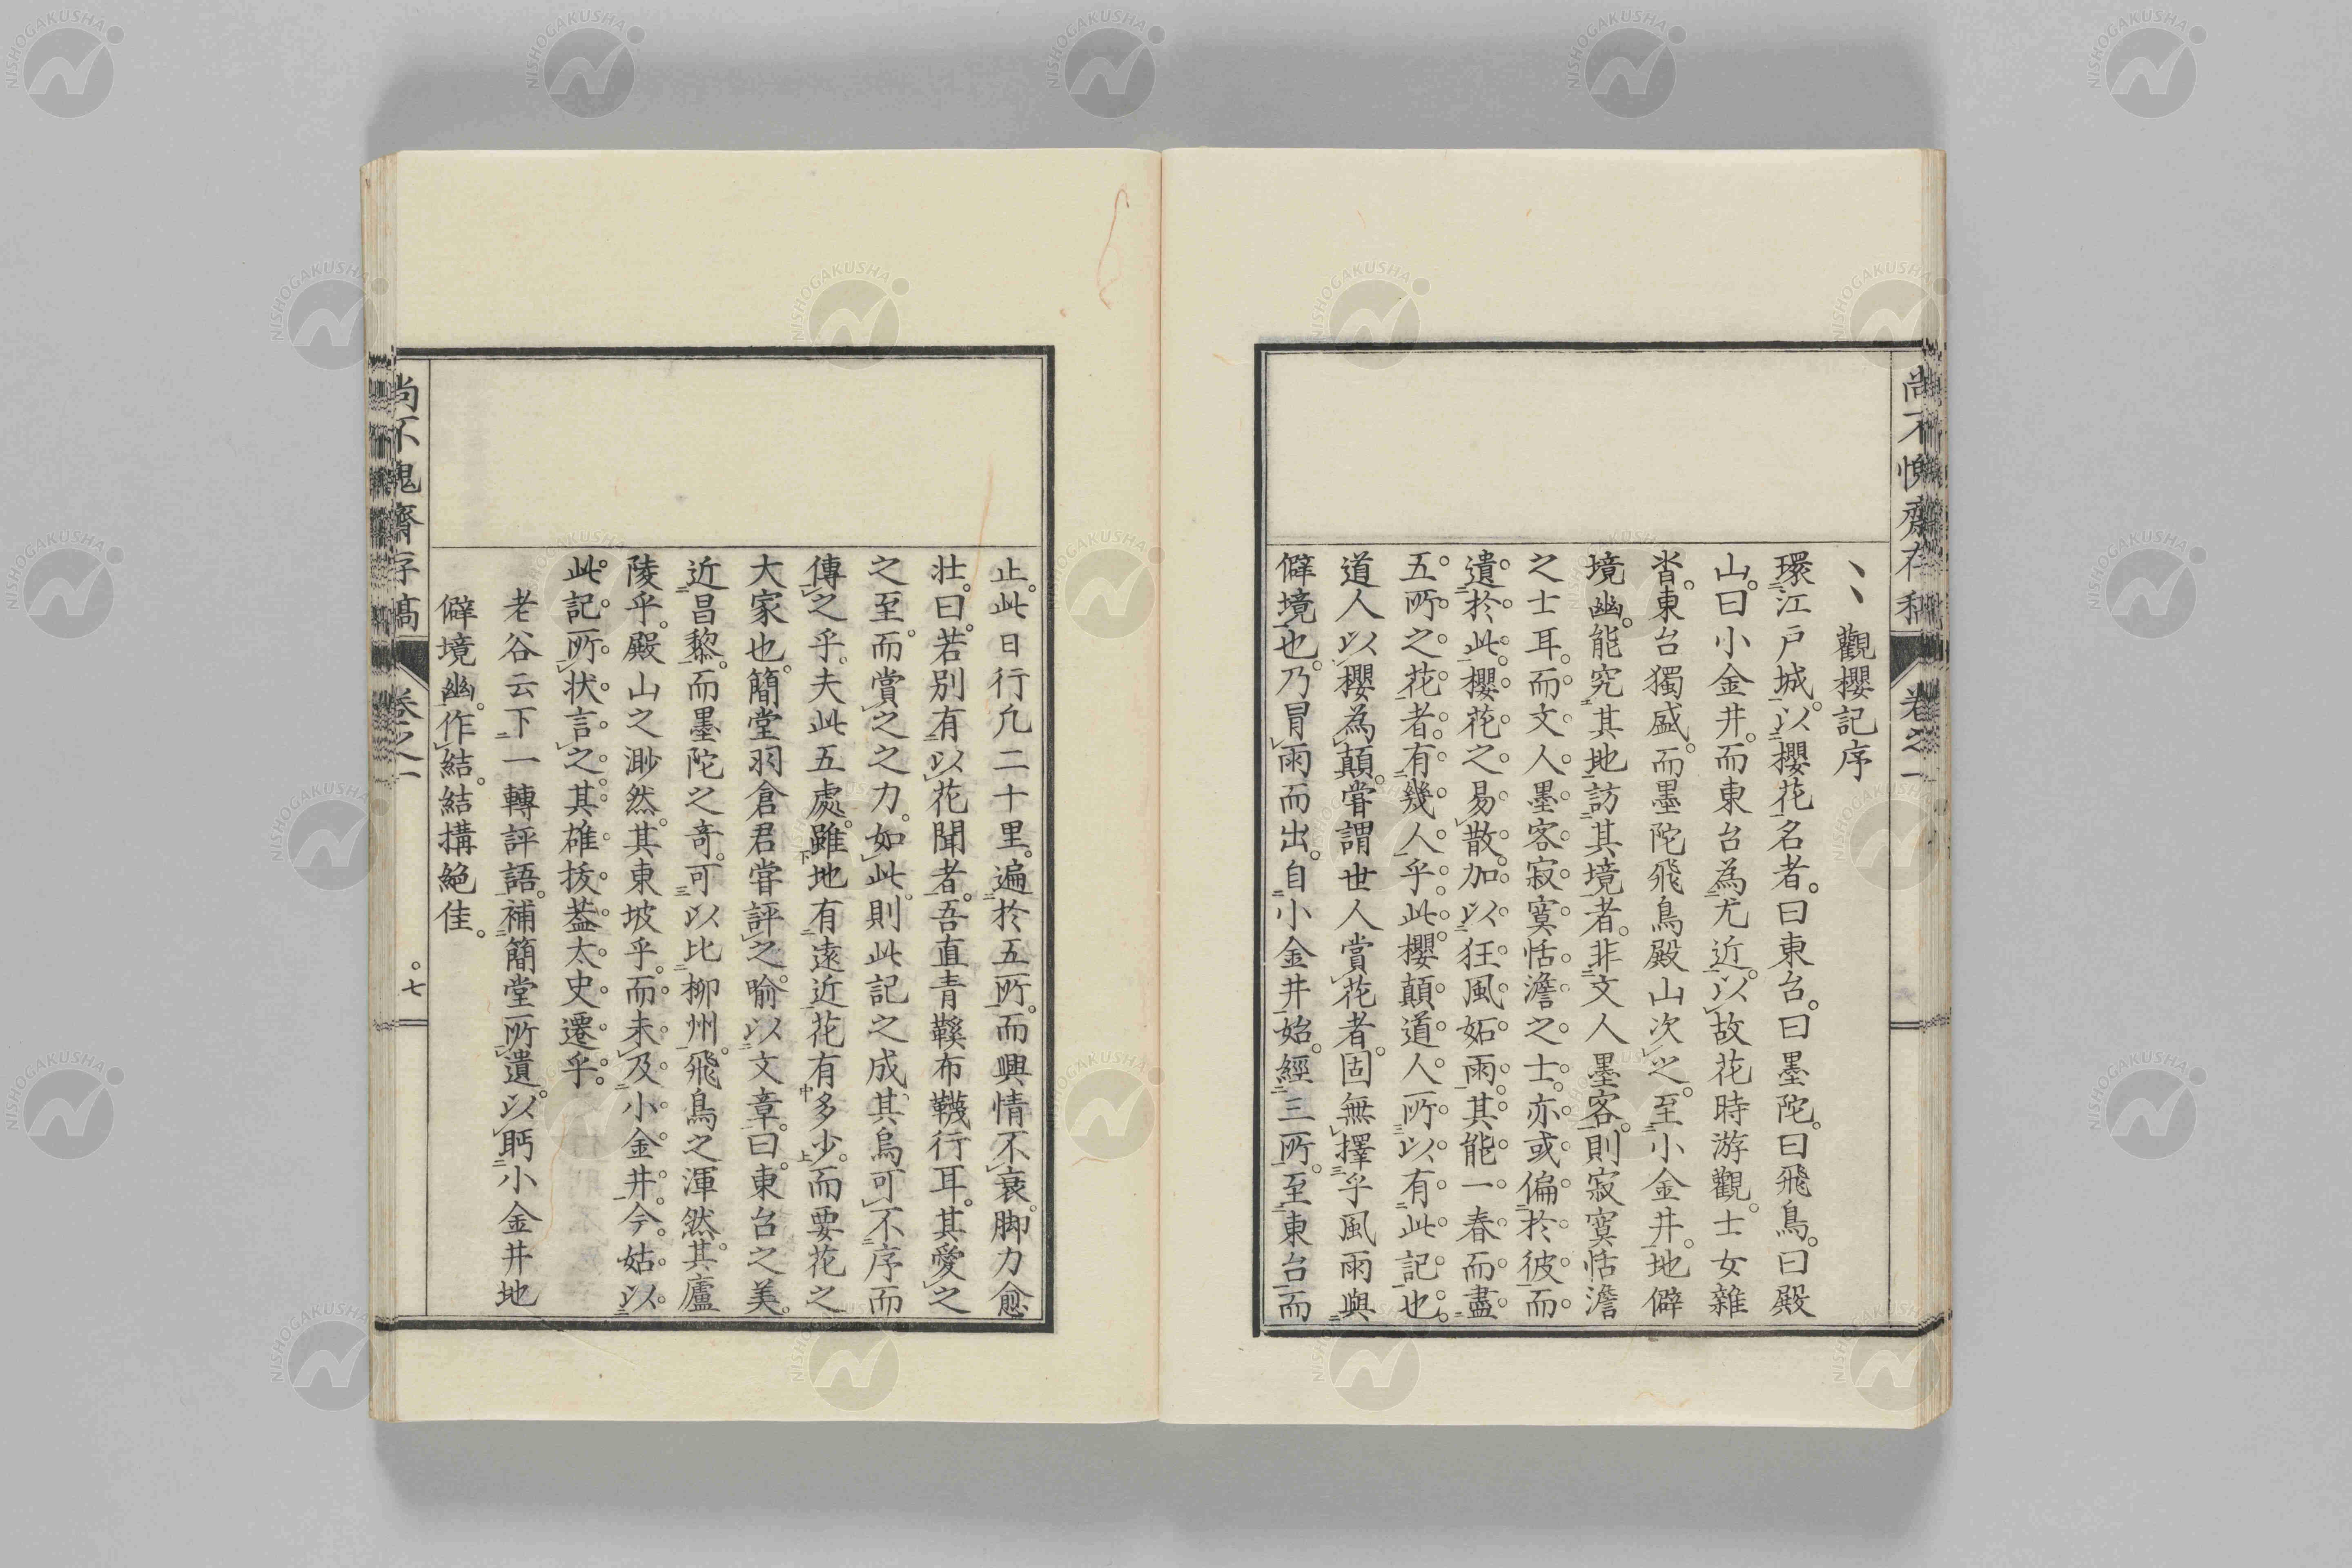 尚不愧齋存稿 卷之一
觀櫻記序
環江戸城。以櫻花名者。曰東台。曰墨陀。曰飛鳥。曰殿
山。曰小金井。而東台為尤近。以故花時游觀。士女雜
沓。東台獨盛。而墨陀飛鳥殿山次之。至小金井。地僻
境幽。能究其地訪其境者。非文人墨客。則寂寞恬澹
之士耳。而文人墨客寂寞恬澹之士。亦或偏於彼而
遺於此。櫻花之易散。加以狂風妬雨。其能一春而盡
五所之花者。有幾人乎。此櫻顛道人所以有此記也。
道人以櫻為顛。嘗謂世人賞花者。固無擇乎風雨與
僻境也。乃冒雨而出。自小金井始。經三所。至東台而
止。此日行凢二十里。遍於五所。而興情不衰。脚力愈
壮。曰。若別有以花聞者。吾直青鞵布韈行耳。其愛之
之至。而賞之之力。如此。則此記之成。其烏可不序而
傳之乎。夫此五處。雖地有遠近花有多少。而要花之
大家也。簡堂羽倉君嘗評之。喻以文章。曰。東台之美。
近昌黎。而墨陀之竒。可以比柳州。飛鳥之渾然。其廬
陵乎。殿山之渺然。其東坡乎。而未及小金井。今姑以
此記所状言之。其雄拔葢太史遷乎。
老谷云下一轉評語。補簡堂所遺。以眄小金井地
僻境幽。作結。結搆絕佳。
尚不愧齋存稿 卷之一 七
NISHOGAKUSHA